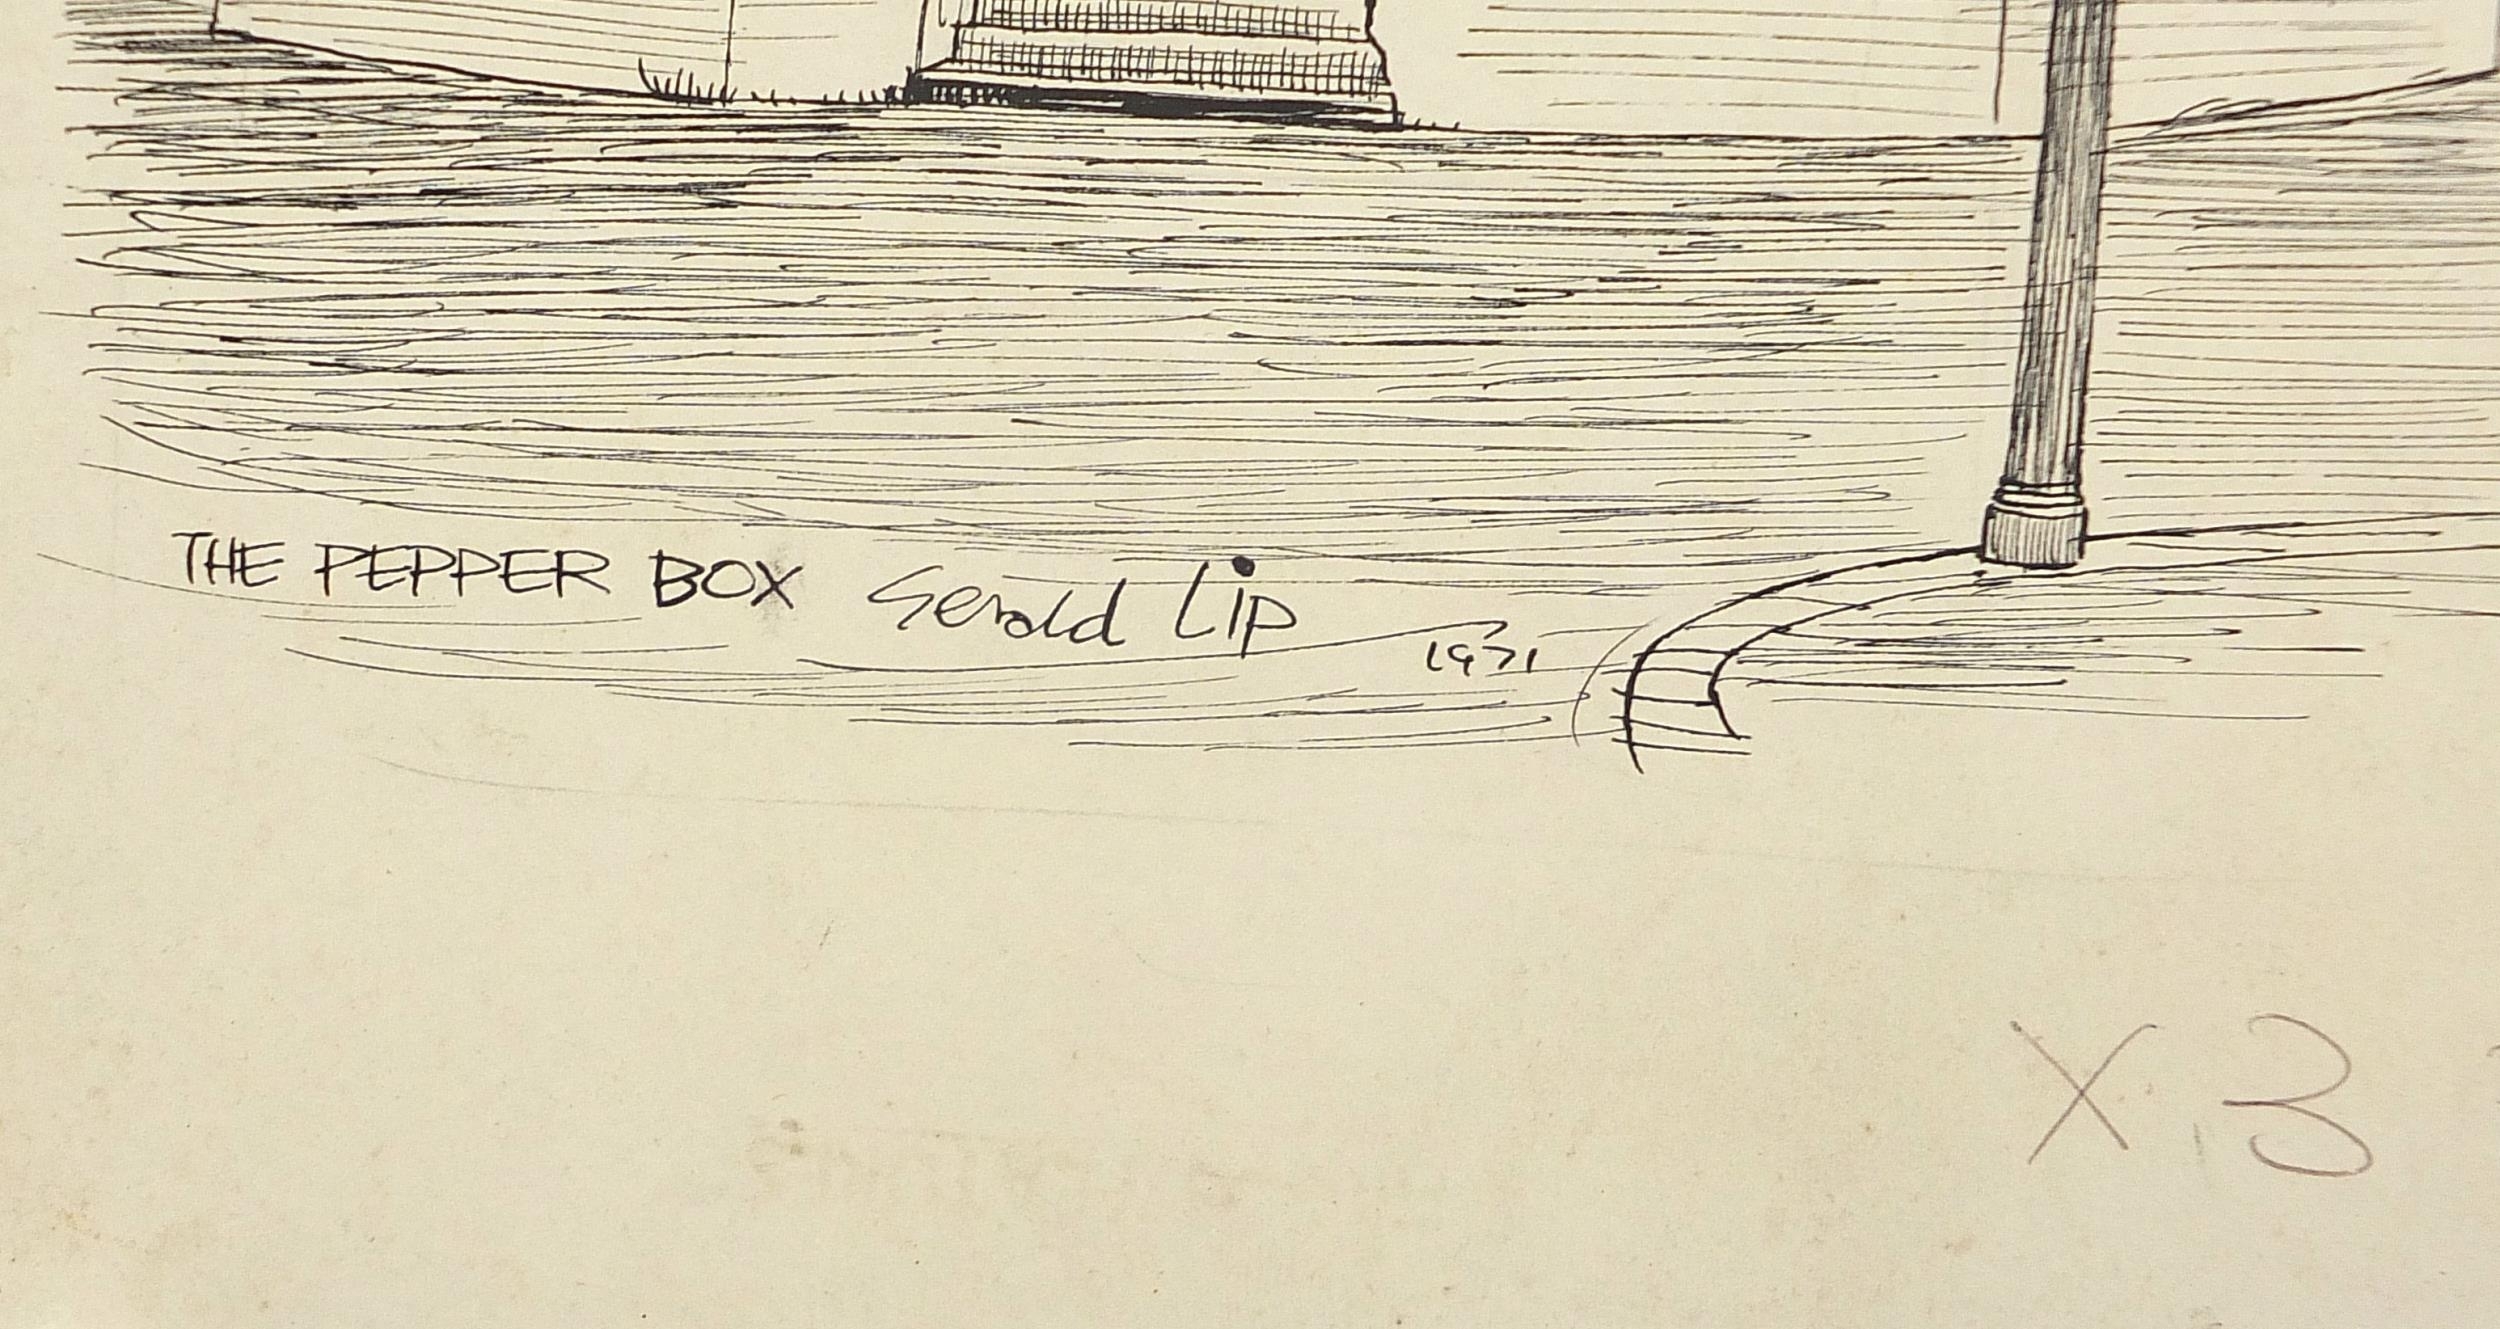 THE PEPPER BOX Gerald Lip
1971
X.3